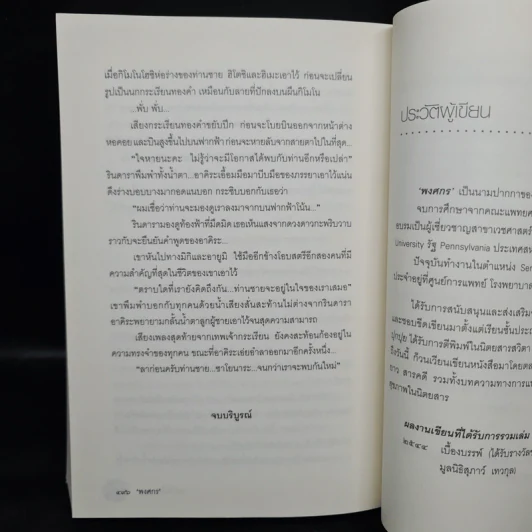 เมื่อกิโมโนโฮชิห่อร่างของท่านชาย ฮิโตชิและฮิเมะเอาไว้ ก่อนจะเปลี่ยน
รูปเป็นนกกระเรียนทองคำ เหมือนกับลายที่ปักลงบนผืนกิโมโน
...พั่บ พั่บ...
เสียงกระเรียนทองคำขยับปีก ก่อนจะโบยบินออกจากหน้าต่าง
หอคอยและบินสูงขึ้นไปบนฟากฟ้า ก่อนจะหายลับจากสายตาไปในที่สุด...
"ใจหายนะคะ ไม่รู้ว่าจะมีโอกาสได้พบกับท่านอีกหรือเปล่า"
รินดาราพึมพำทั้งน้ำตา...อาคิระเอื้อมมือมาบีบมือของภรรยาเอาไว้แน่น
ดึงร่างบอบบางมากอดแนบอก กระซิบบอกกับเธอว่า
"ผมเชื่อว่าท่านจะมองดูเราลงมาจากบนฟากฟ้าโน้น..."
รินดารามองดูท้องฟ้าที่มืดมิด เธอเห็นแสงจากดวงดาวกะพริบวาบ
ราวกับจะยืนยันคำพูดของอาคิระ...
เขาหันไปทางมิกิและอายูมิ ใช้มืออีกข้างโอบสตรีอีกสองคนที่มี
ความสำคัญที่สุดในชีวิตของเขาเอาไว้
"ตราบใดที่เรายังคิดถึงกัน...ท่านชายจะอยู่ในใจของเราเสมอ"
เขาพึมพำบอกกับทุกคนด้วยน้ำเสียงสั่นสะท้านไม่ต่างจากรินดารา
อาคิระพยายามกลั้นน้ำตาลูกผู้ชายเอาไว้จนสุดความสามารถ
เสียงเพลงสุดท้ายจากเทพเจ้ากระเรียน ยังคงสะท้อนก้องอยู่ใน
ความทรงจำของทุกคน ขณะที่อาคิระเอ่ยอำลาออกมาอีกครั้งหนึ่ง...
"ลาก่อนครับท่านชาย...ซาโยนาระ...จนกว่าเราจะพบกันใหม่"
จบบริบูรณ์
"พงศกร"
ประวัติผู้เขียน
'พงศกร' เป็นนามปากกาของ
จบการศึกษาจากคณะแพทยศ
อบรมเป็นผู้เชี่ยวชาญสาขาเวชศาสตร์
University รัฐ Pennsylvania ประเทศสห
ปัจจุบันทำงานในตำแหน่ง Sen
ประจำอยู่ที่ศูนย์การแพทย์ โรงพยาบาล
ได้รับการสนับสนุนและส่งเสริม
และชอบขีดเขียนมาตั้งแต่เรียนชั้นประถ
ได้รับการตีพิมพ์ในนิตยสารสวิตา
ถึงวันนี้ ก็วนเวียนเขียนหนังสือมาโดยตล
ยาว สารคดี รวมทั้งบทความทางการแพ
สุขภาพในนิตยสาร
ผลงานเขียนที่ได้รับการรวมเล่ม
๒๕๔๔ เบื้องบรรพ์ (ได้รับรางวัล
มูลนิธิสุภาว์ เทวกุล)